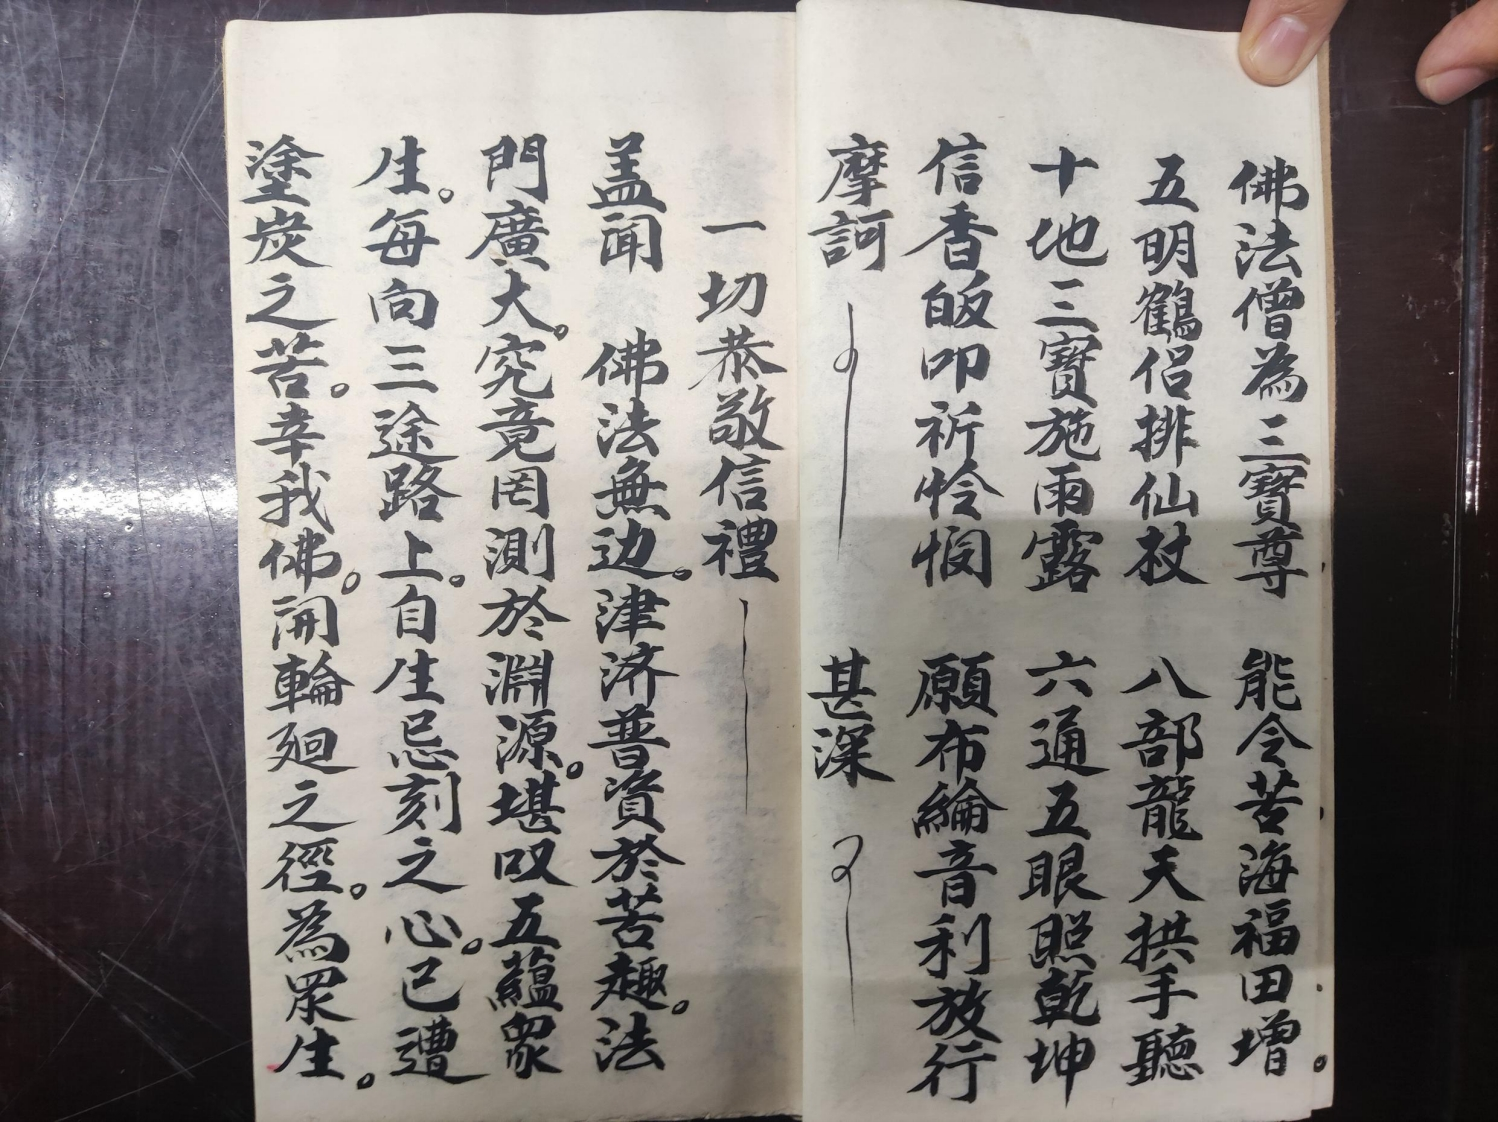 佛法僧為三寳尊 能令苦海福田增。
五明鶴侣排仙杖 八部龍天拱手聽
十地三寳施雨露 六通五眼照乾坤
信香皈叩祈怜悯 願布綸音利放行
摩訶 甚深
一切恭敬信禮
盖闻 佛法無边。津济普資於苦趣。法
門廣大。究竟罔測於淵源。堪叹五蘊衆
生。每向三途路上。自生忌刻之心。已遭
塗炭之苦。幸我佛。開輪廻之徑。為眾生。